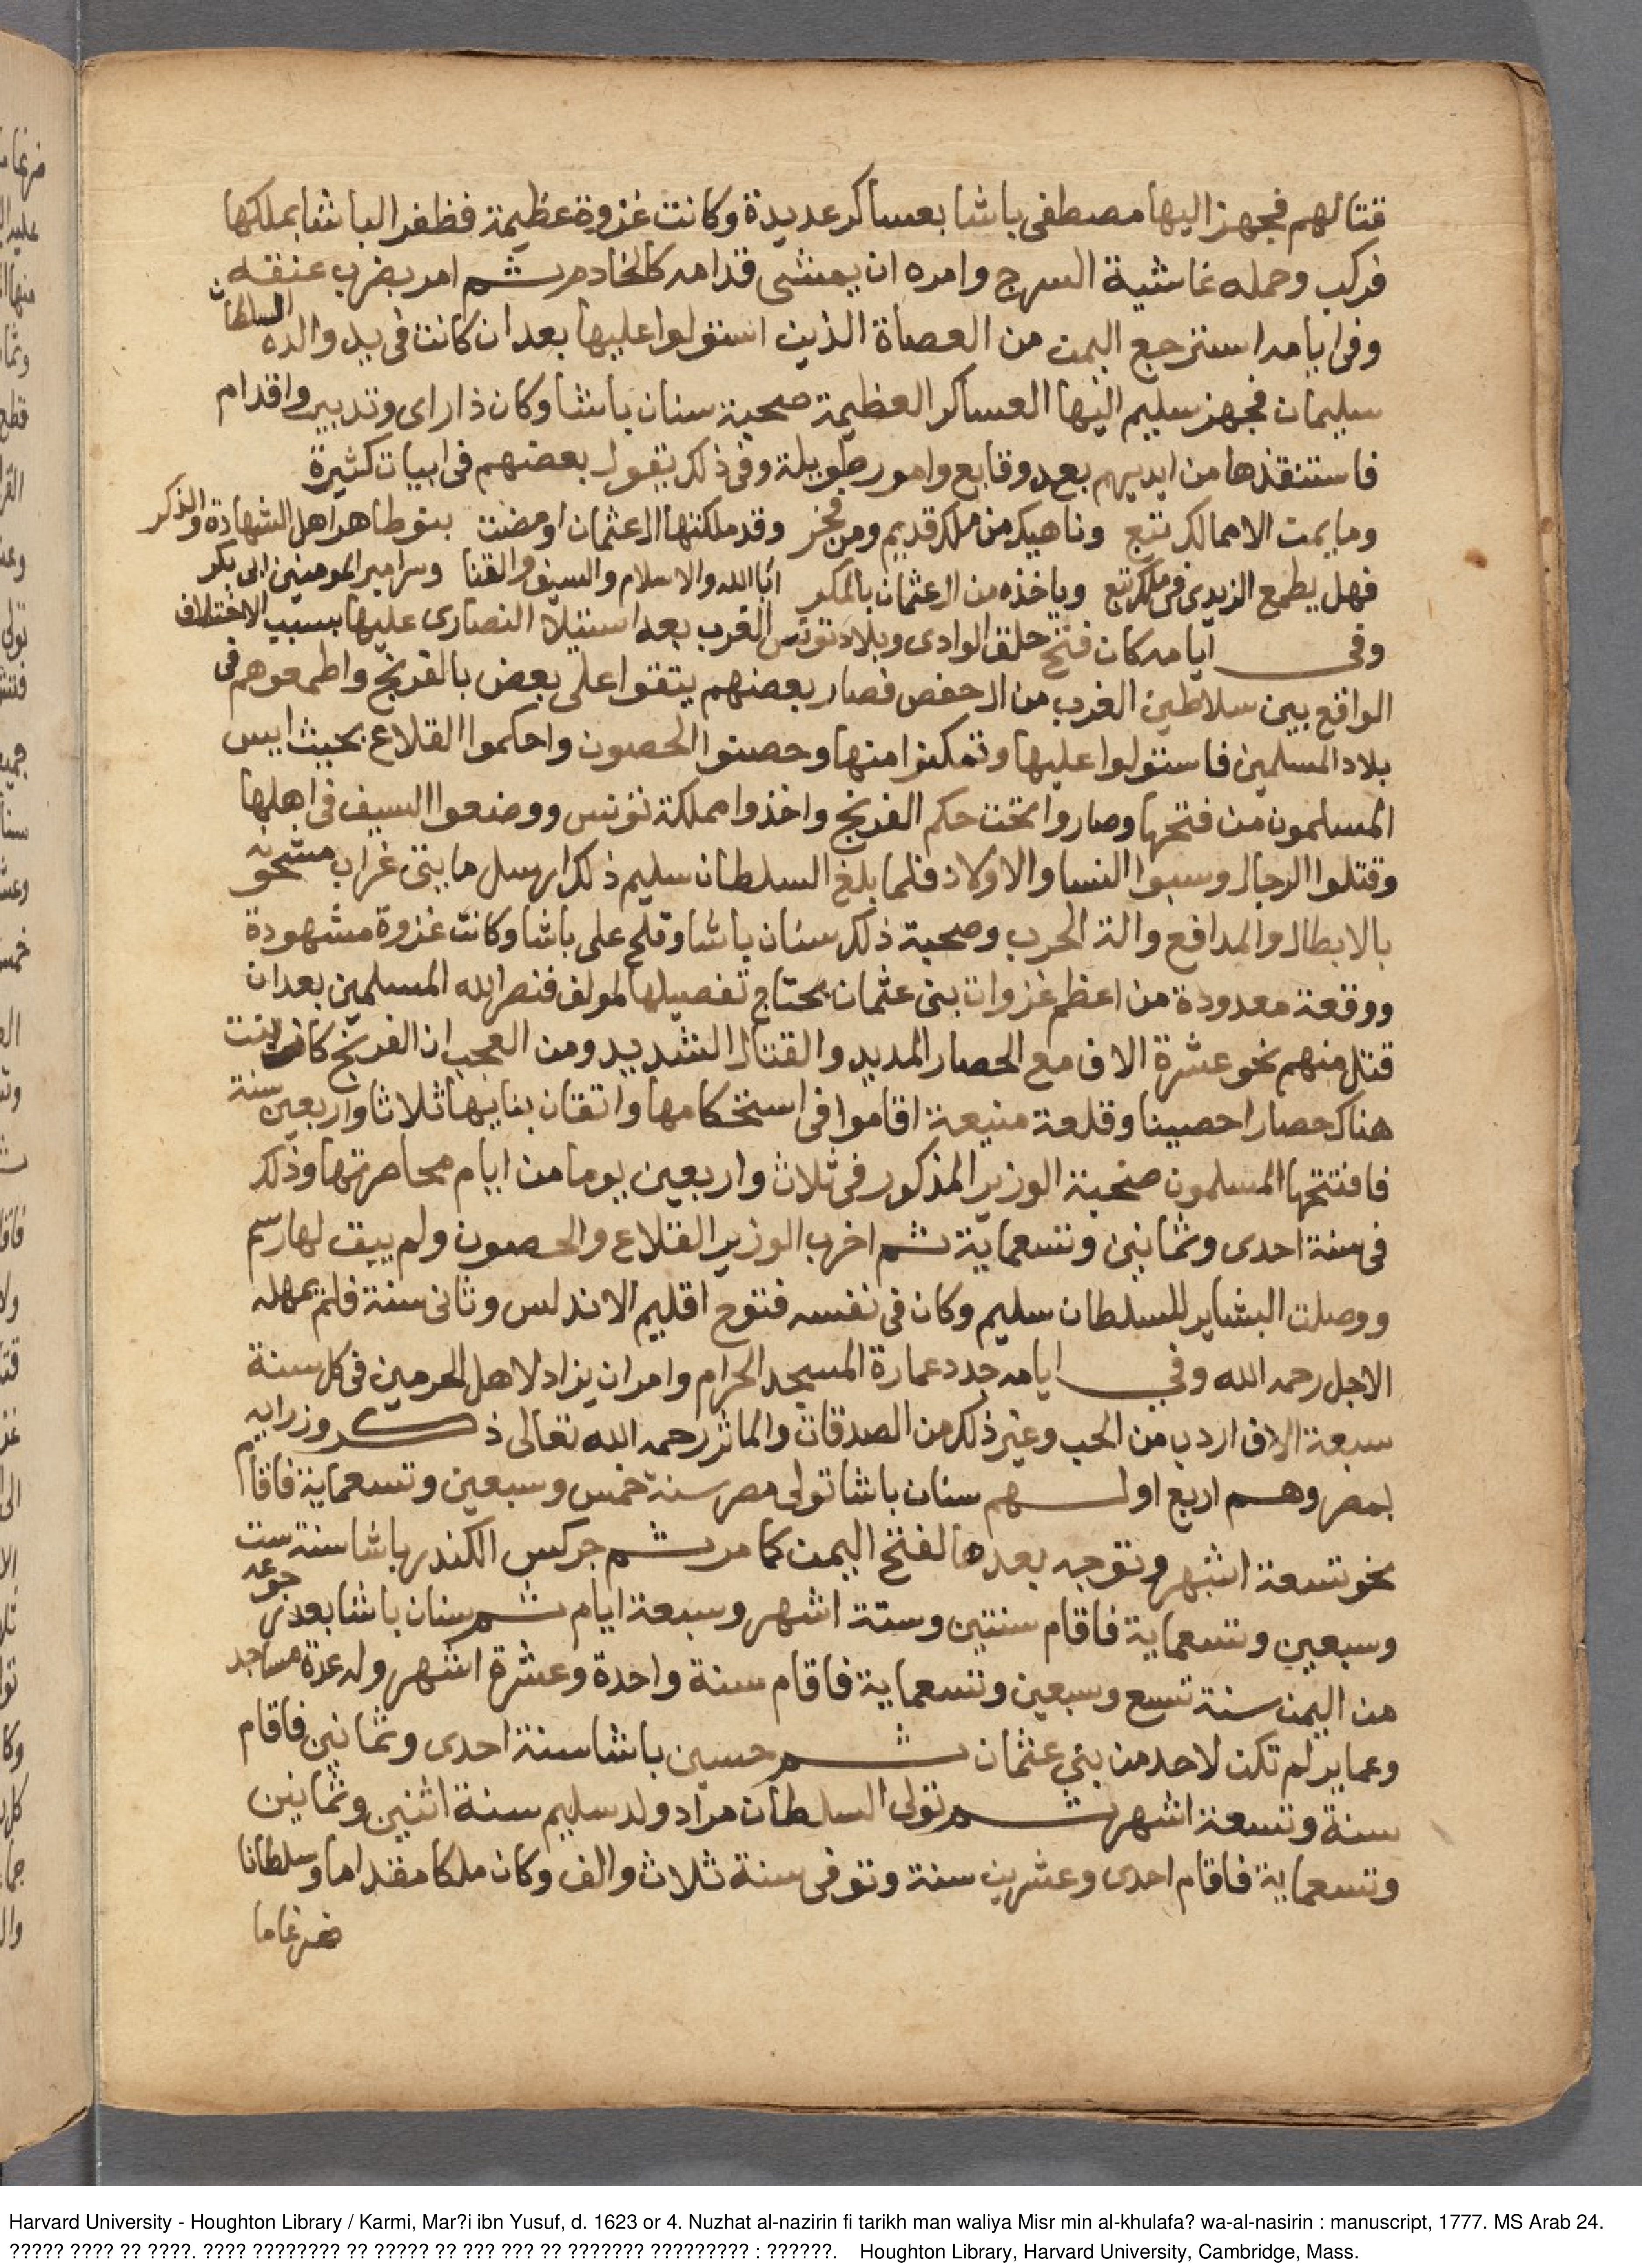 قتالهم فجهز اليها مصطفى باشا بعساكر عديدة وكانت غزوة عظيمة فظفر الباشا بملكها
فركب وحمله غاشية السرج وامره ان يمشى قدامه كالخادم ثم امر بضرب عنقه
وفى ايامه استرجع اليمن من العصاة الذين استولوا عليها بعد ان كانت فى يد والده السلطان
سليمان فجهز سليم اليها العساكر العظيمة صحبة سنان باشا وكان ذا راى وتدبير واقدام
فاستنقذها من ايديهم بعد وقايع وامور طويلة وفى ذلك يقول بعضهم فى ابيات كثيرة
وما يمن الا ممالك تبع وناهيك من ملك قديم ومن فخر وقد ملكتها ال عثمان اومضت بنو طاهر اهل الشهادة والذكر
فهل يطمع الزيدى فى ملك تبع وياخذه من ال عثمان بالمكر ابا الله والاسلام والسيف والقنا وسر امير المومنين ابى بكر
وفى ايامه كان فتح حلق الوادى وبلاد تونس الغرب بعد استيلا النصارى عليها بسبب الاختلاف
الواقع بين سلاطين الغرب من ال حفص فصار بعضهم يتقوا على بعض بالفرنج واطمعوهم فى
بلاد المسلمين فاستولوا عليها وتمكنوا منها وحصنوا الحصون واحكموا القلاع بحيث ايس
المسلمون من فتحها وصاروا تحت حكم الفرنج واخذوا مملكة تونس ووضعوا السيف فى اهلها
وقتلوا الرجال وسبوا النسا والاولاد فلما بلغ السلطان سليم ذلك ارسل مايتى غراب مشحونه
بالابطال والمدافع والة الحرب وصحبة ذلك سنان باشا وقلج على باشا وكانت غزوة مشهودة
ووقعة معدودة من اعظم غزوات بنى عثمان يحتاج تفصيلها لمولف فنصر الله المسلمين بعد ان
قتل منهم نحو عشرة الاف مع الحصار المديد والقتال الشديد ومن العجب ان الفرنج كانوا بنت
هناك حصارا حصينا وقلعة منيعة اقاموا فى استحكامها واتقان بنايها ثلاثا واربعين سنة
فافتتحها المسلمون صحبة الوزير المذكور فى ثلاث واربعين يوما من ايام محاصرتها وذلك
فى سنة احدى وثمانين وتسعماية ثم اخرب الوزير القلاع والحصون ولم يبق لها رسم
ووصلت البشاير للسلطان سليم وكان فى نفسه فتوح اقليم الاندلس وثانى سنة فلم تمهله
الاجل رحمه الله وفى ايامه جدد عمارة المسجد الحرام وامر ان يزاد لاهل الحرمين فى كل سنة
سبعة الاف اردب من الحب وغير ذلك من الصدقات والماثر رحمه الله تعالى ذكر وزرايه
بمصر وهم اربع اولهم سنان باشا تولى مصر سنة خمس وسبعين وتسعماية فاقام
نحو تسعة اشهر وتوجه بعدها لفتح اليمن كما مر ثم جركس الكندر باشا سنة ست
وسبعين وتسعماية فاقام سنتين وستة اشهر وسبعة ايام ثم سنان باشا بعد رجوعه
من اليمن سنة تسع وسبعين وتسعماية فاقام سنة واحدة وعشرة اشهر وله عدة مساجد
وعماير لم تكن لاحد من بني عثمان ثم حسين باشا سنة احدى وثمانين فاقام
سنة وتسعة اشهر ثم تولى السلطان مراد ولد سليم سنة اثنين وثمانين
وتسعماية فاقام احدى وعشرين سنة وتوفى سنة ثلاث والف وكان ملكا مقداما وسلطانا
ضرغاما
Harvard University - Houghton Library / Karmi, Mar?i ibn Yusuf, d. 1623 or 4. Nuzhat al-nazirin fi tarikh man waliya Misr min al-khulafa? wa-al-nasirin : manuscript, 1777. MS Arab 24.
????? ???? ?? ????. ???? ???????? ?? ????? ?? ??? ??? ?? ??????? ????????? : ??????. Houghton Library, Harvard University, Cambridge, Mass.